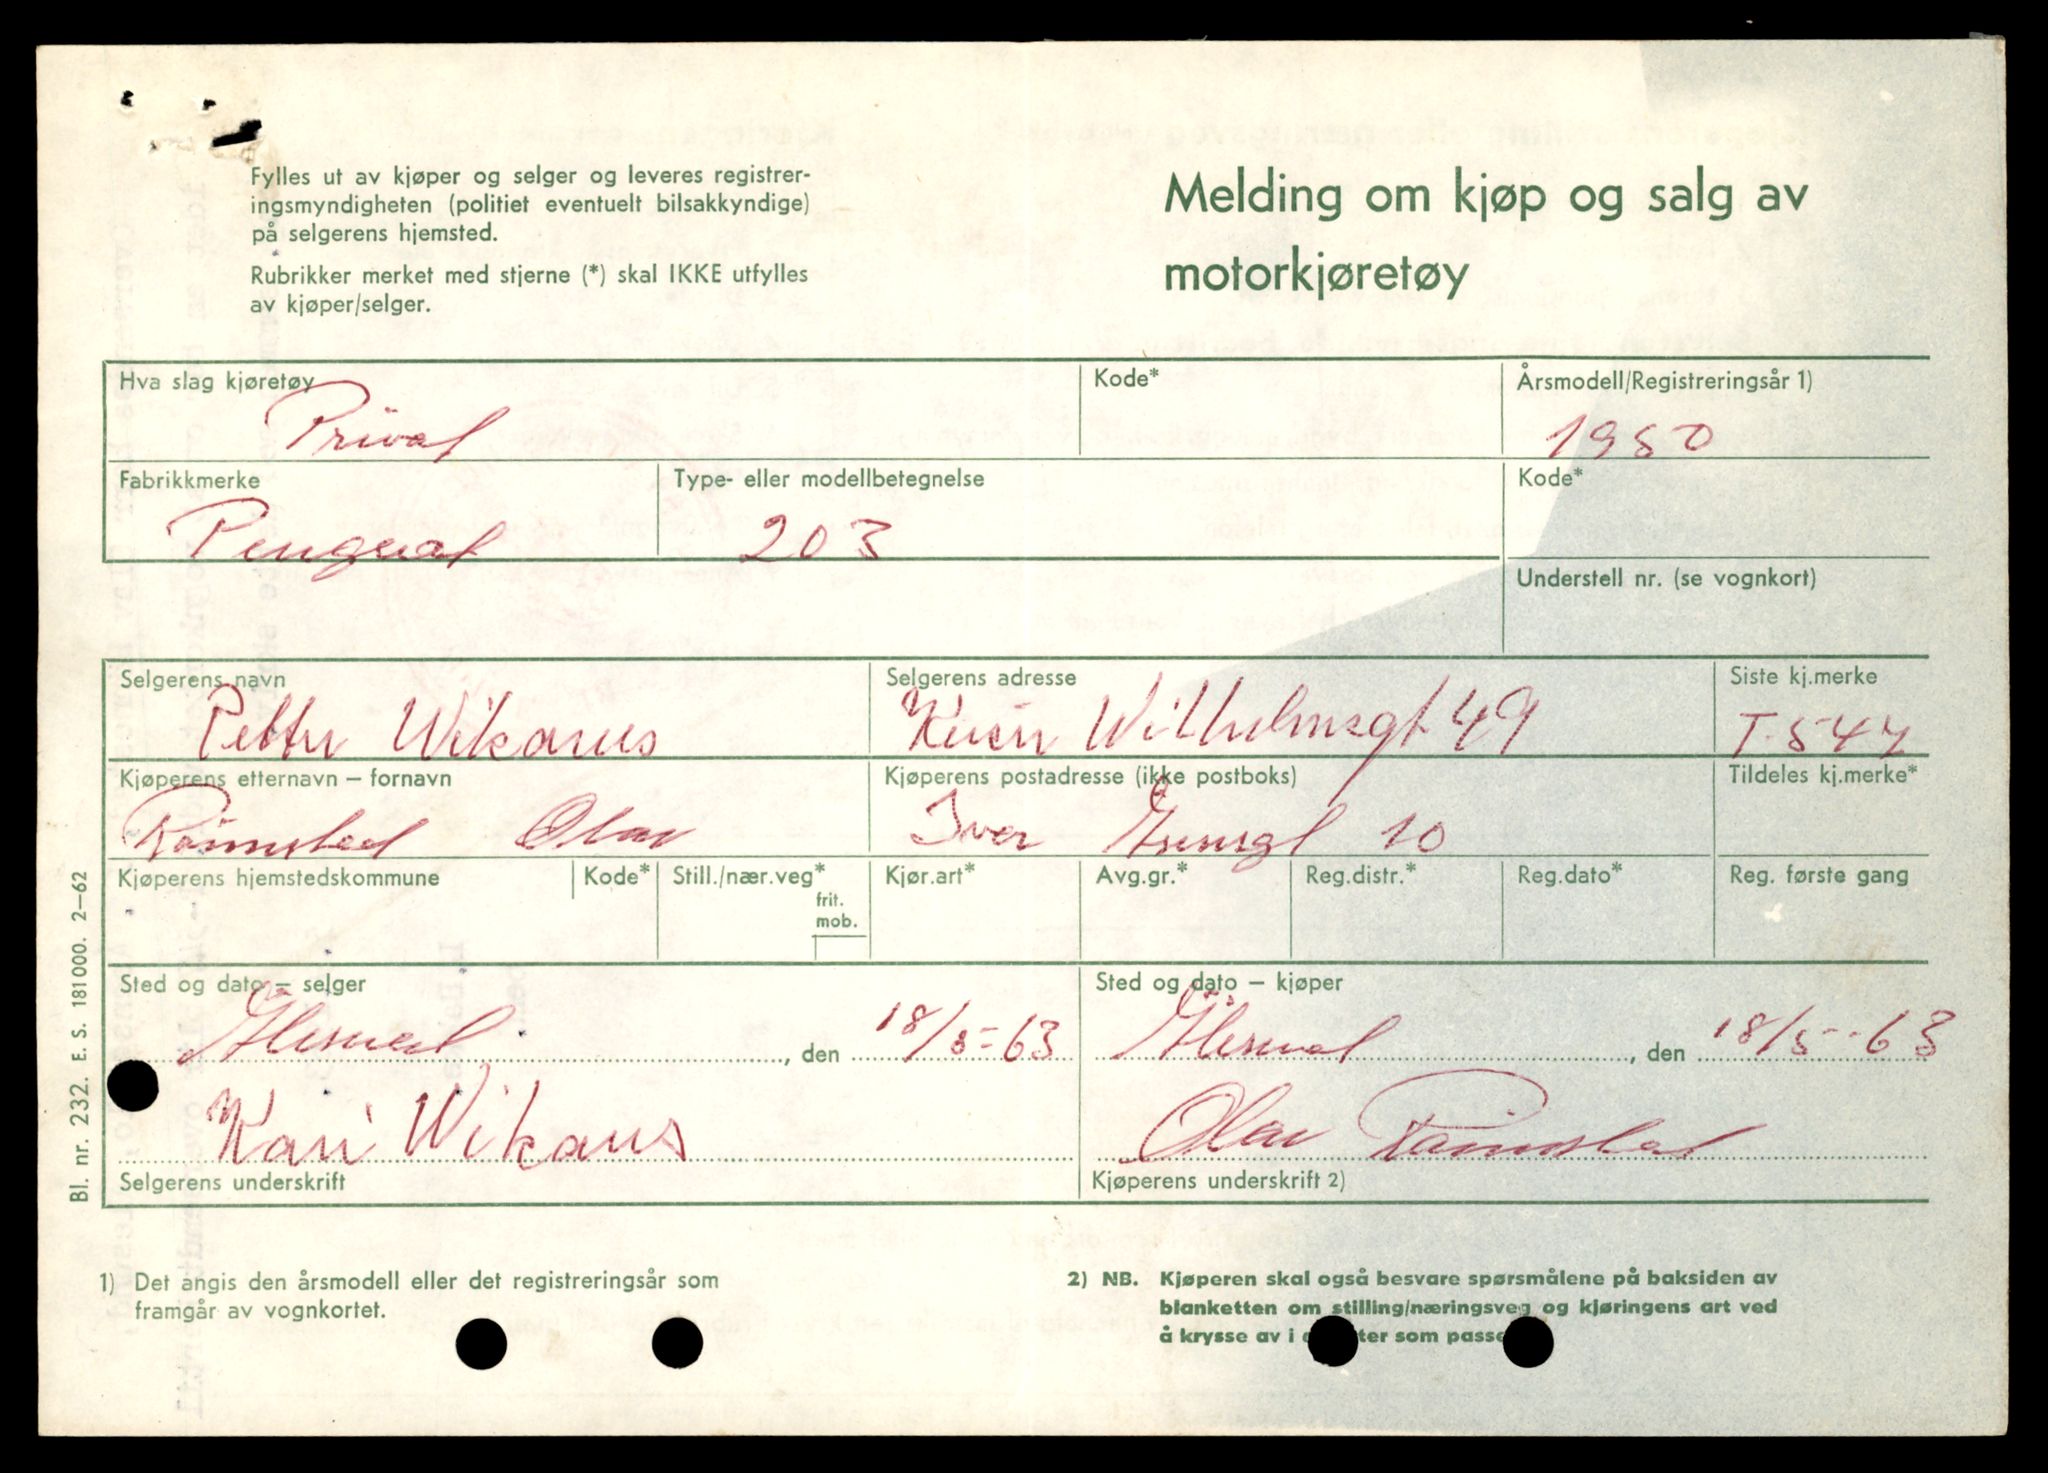 Fylles ut av kjøper og selger og leveres registrer-
ingsmyndigheten (politiet eventuelt bilsakkyndige)
på selgerens hjemsted.
Rubrikker merket med stjerne (*) skal IKKE utfylles
av kjøper/selger.
Melding om kjøp og salg av
motorkjøretøy
Hva slag kjøretøy
Kode*
Årsmodell/Registreringsår 1)
Privat
1950
Fabrikkmerke
Type- eller modellbetegnelse
Kode*
203
Understell nr. (se vognkort)
Selgerens navn
Selgerens adresse
Siste kj.merke
Petter Wikanes
Wilhelmsgt 49
T-544
Kjøperens etternavn – fornavn
Kjøperens postadresse (ikke postboks)
Tildeles kj.merke*
Ramstad Olav
Iver 10
Kjøperens hjemstedskommune
Kode*
Still./nær.veg*
frit.
mob.
Kjør.art*
Avg.gr.*
Reg.distr.*
Reg.dato*
Reg. første gang
Sted og dato – selger
Sted og dato – kjøper
Ålesund, den 18/5-63
Ålesund, den 18/5-63
Kari Wikanes
Olav Ramstad
Selgerens underskrift
Kjøperens underskrift 2)
1) Det angis den årsmodell eller det registreringsår som
framgår av vognkortet.
2) NB. Kjøperen skal også besvare spørsmålene på baksiden av
blanketten om stilling/næringsveg og kjøringens art ved
å krysse av i ter som passe
Bl. nr. 232. E. S. 181000. 2–62